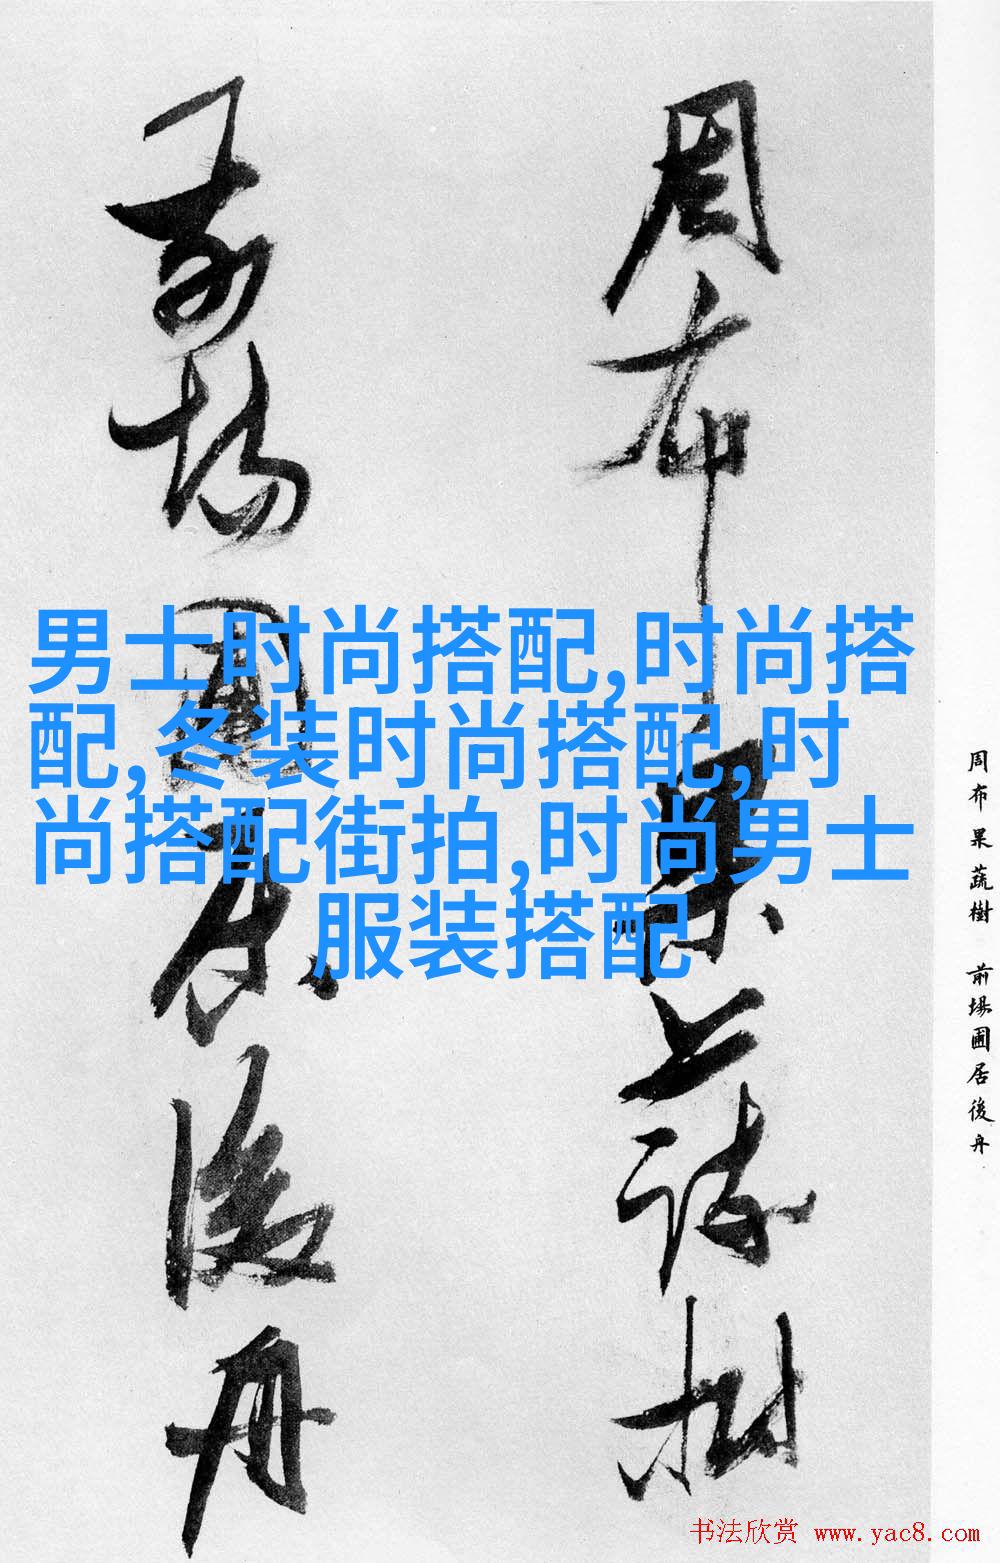 周布果蔬樹
前場圃居後舟
男士时尚搭配,时尚搭
配,冬装时尚搭配,时
尚搭配街拍,时尚男士
服装搭配
周布果蔬樹 前場圃居後舟
书法欣赏 www.yac8.com